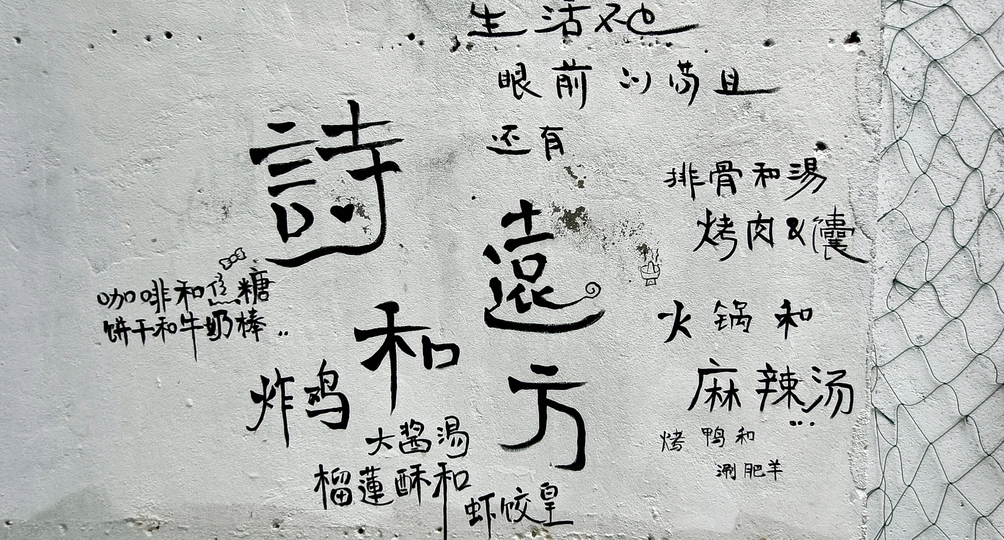 生活不止
眼前的苟且
还有
詩
和
遠
方
排骨和湯
烤肉&馕
火锅和
麻辣汤...
烤鸭和
涮肥羊
咖啡和糖
饼干和牛奶棒..
炸鸡
大酱湯
榴蓮酥和
虾饺皇